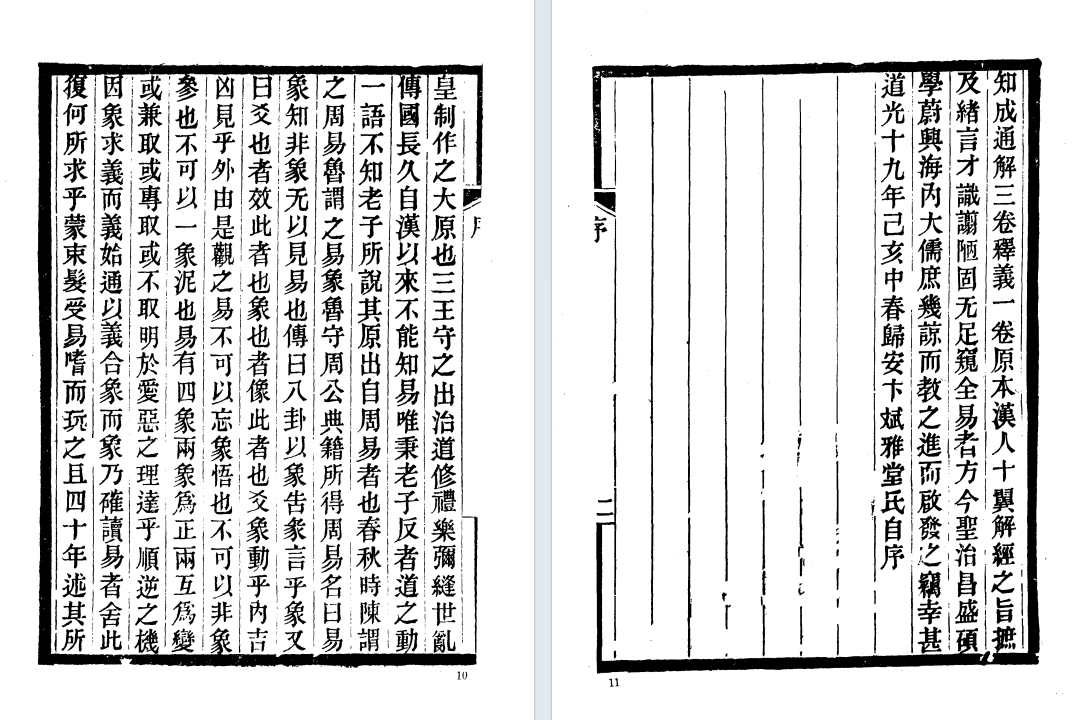 皇制作之大原也三王守之出治道修禮樂彌縫世亂
傳國長久自漢以來不能知易唯秉老子反者道之動
一語不知老子所說其原出自周易者也春秋時陳謂
之周易魯謂之易象魯守周公典籍所得周易名曰易
象知非象无以見易也傳曰八卦以象告彖言乎象又
曰爻也者效此者也象也者像此者也爻象動乎內吉
凶見乎外由是觀之易不可以忘象悟也不可以非象
參也不可以一象泥也易有四象兩象爲正兩互爲變
或兼取或專取或不取明於愛惡之理達乎順逆之機
因象求義而義始通以義合象而象乃確讀易者舍此
復何所求乎蒙束髮受易嗜而玩之且四十年述其所
序
10
知成通解三卷釋義一卷原本漢人十翼解經之旨摭
及緒言才識譾陋固无足窺全易者方今聖治昌盛碩
學蔚興海內大儒庶幾諒而教之進而啟發之竊幸甚
道光十九年己亥中春歸安卞斌雅堂氏自序
序
二
11